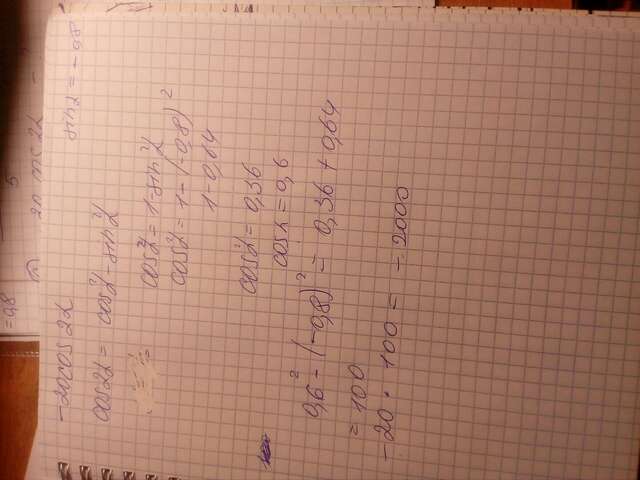 -20cos2α sinα = -0,8
cos2α = cos²α - sin²α
cos²α = 1 - sin²α
cos²α = 1 - (-0,8)²
1 - 0,64
cos²α = 0,36
cosα = 0,6
0,6² - (-0,8)² = 0,36 + 0,64
= 100
-20 · 100 = -2000
= 0,8
5